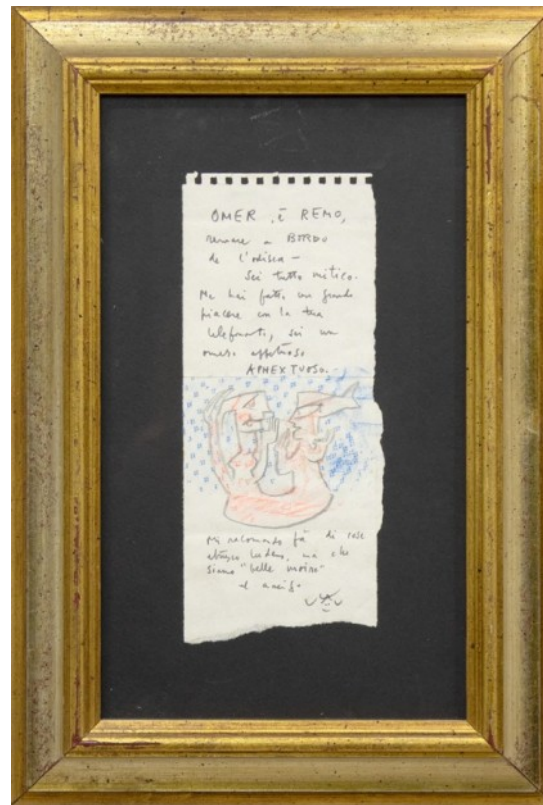 OMER, È REMO,
remare a BORDO
de l'odissea -
Sei tutto mitico.
Me hai fatto un grande
piacere con la tua
telefonata, sei un
omero affettuoso
APHEXTUOSO. -
Mi racomando fà di cose
ma che
siano "belle